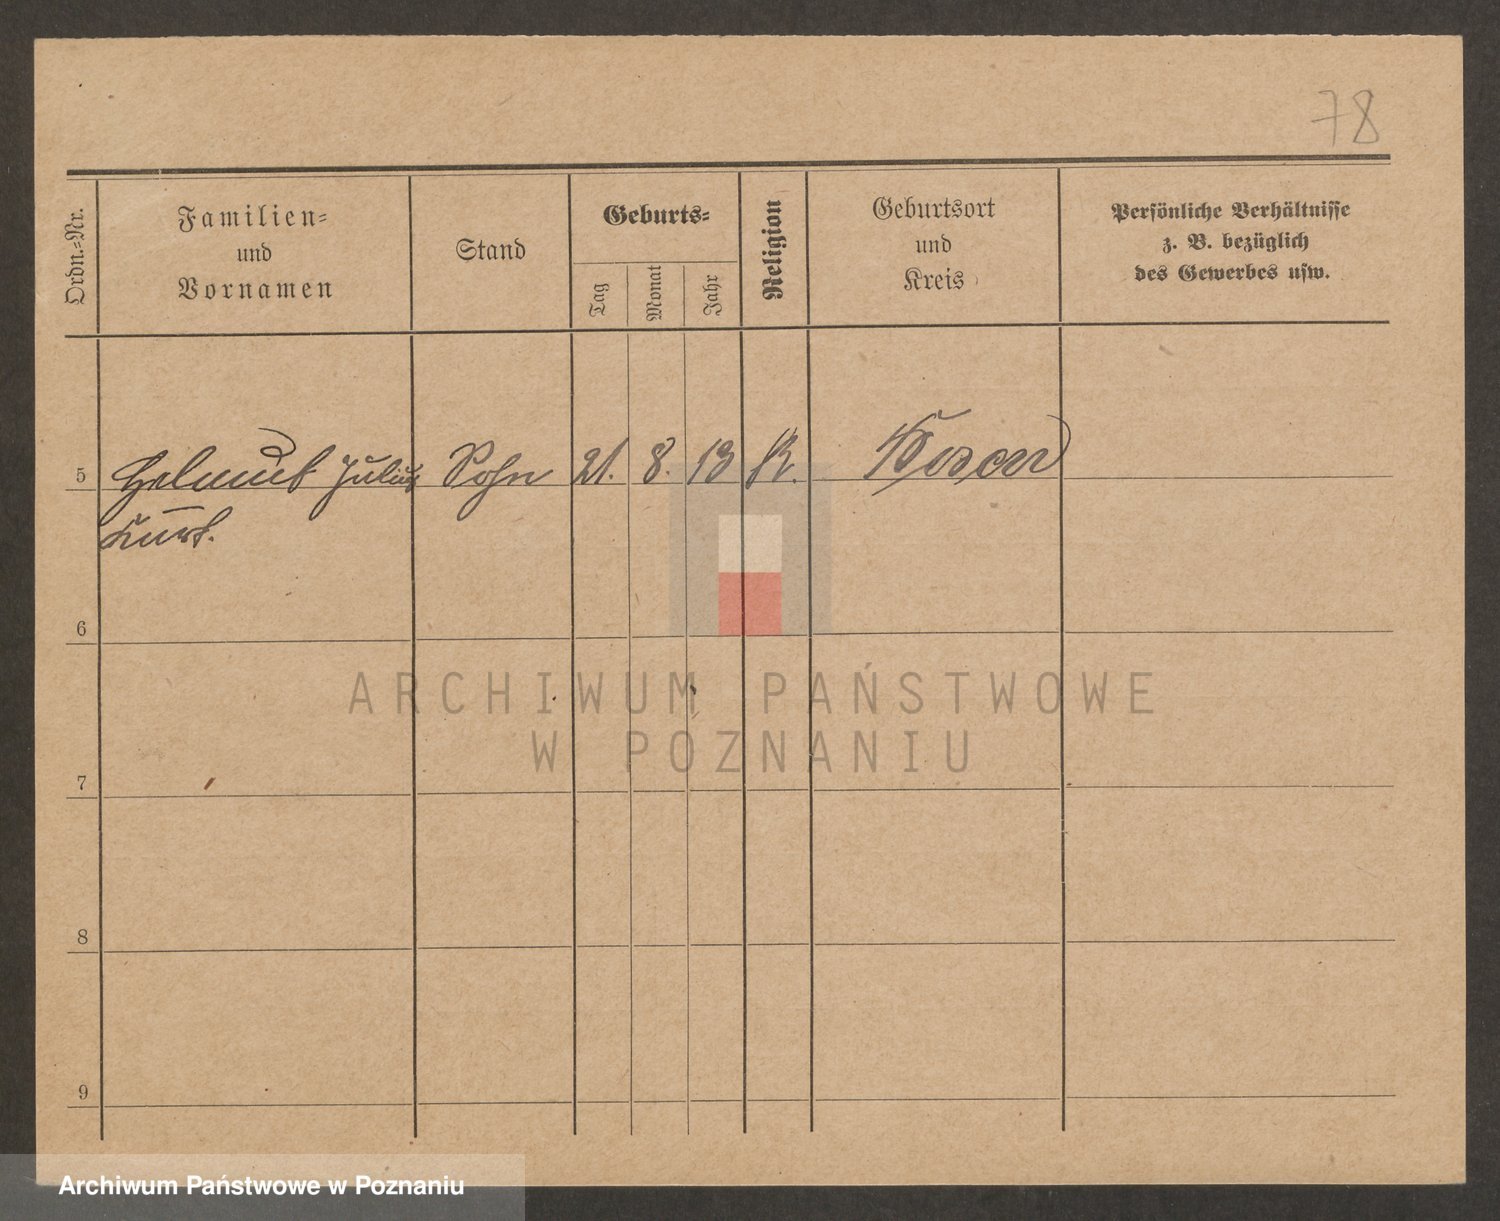 78
Ordn.-Nr.
Familien-
und
Vornamen
Stand
Geburts-
Tag
Monat
Jahr
Religion
Geburtsort
und
Kreis
Persönliche Verhältnisse
z. B. bezüglich
des Gewerbes usw.
5 Helmut Julius Sohn 21. 8. 13 K. Posen
Kurt.
6
7
8
9
ARCHIWUM PAŃSTWOWE
W POZNANIU
Archiwum Państwowe w Poznaniu